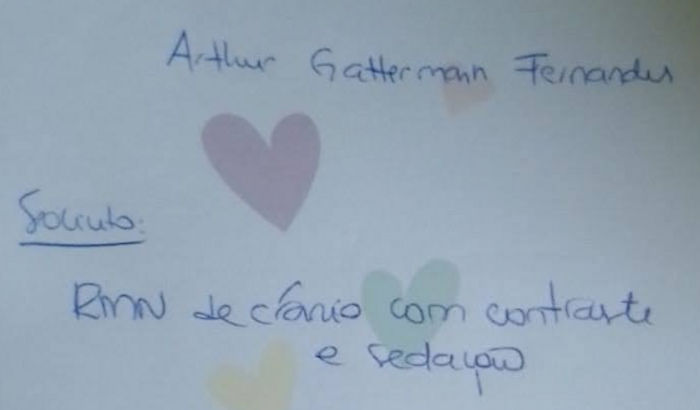 Arthur Gattermann Fernandes
Solicito:
RMN de crânio com contraste
e sedação